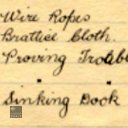 Wire Ropes
Brattice Cloth.
Proving
Sinking Dook